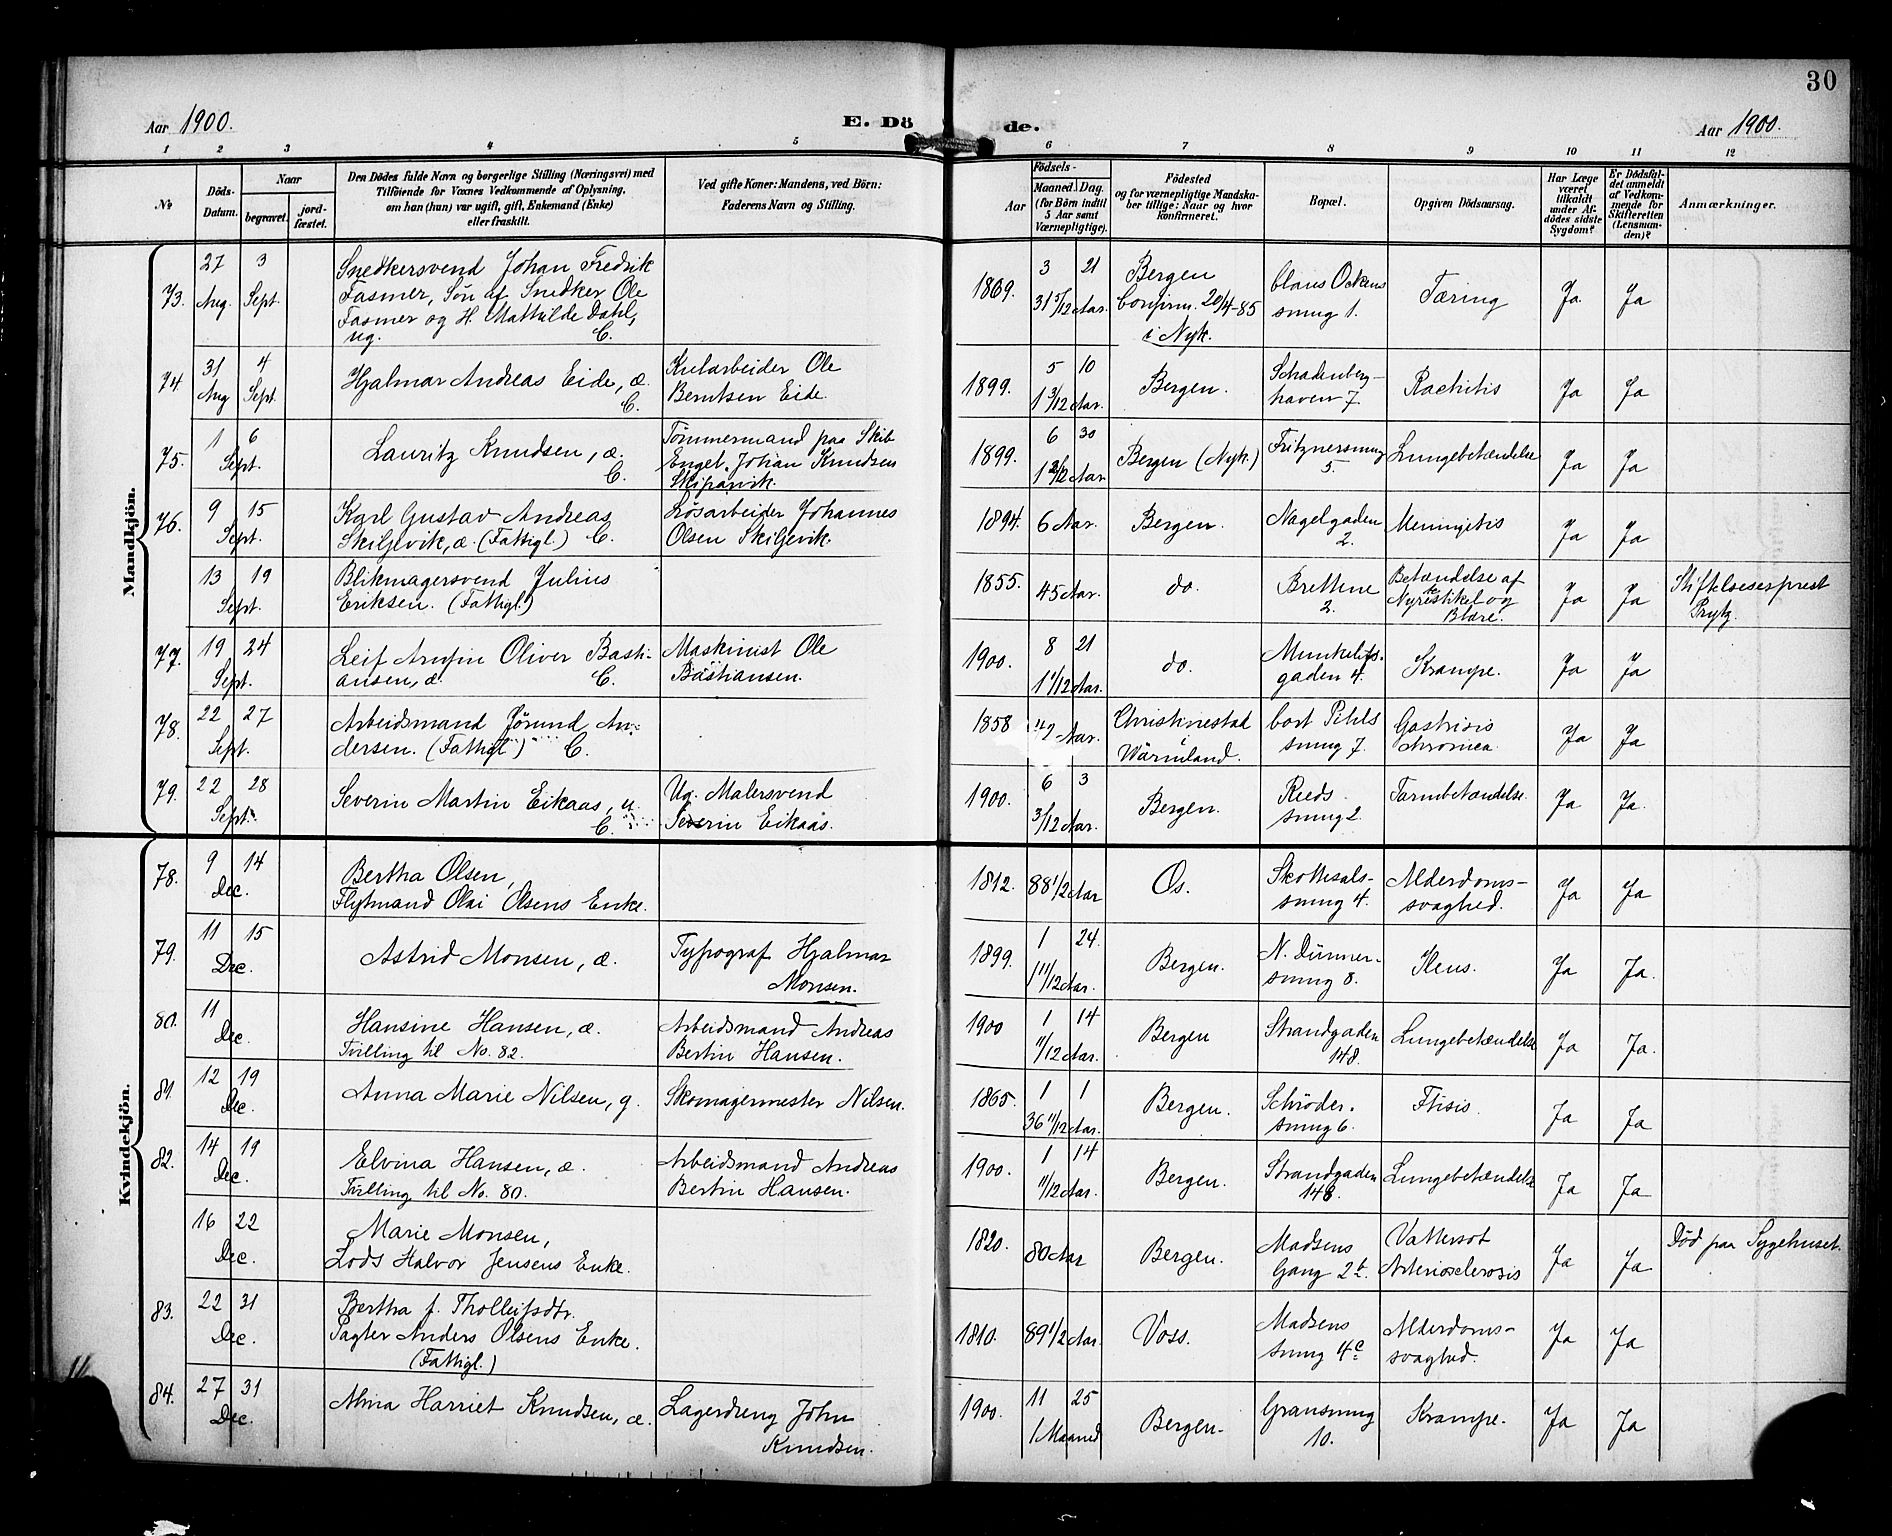 30
Aar 1900.
E. Dö de.
Aar 1900.
1 2 3 4 5 6 7 8 9 10 11 12
No
Döds-Datum.
Naar
begravet.
jord-fæstet.
Den Dödes fulde Navn og borgerlige Stilling (Næringsvei) med
Tilföiende for Voxnes Vedkommende af Oplysning,
om han (hun) var ugift, gift, Enkemand (Enke)
eller fraskilt.
Ved gifte Koner: Mandens, ved Börn:
Faderens Navn og Stilling.
Födsels-
Aar
Maaned. Dag.
(for Börn indtil
5 Aar samt
Værnepligtige).
Födested
og for værnepligtige Mandska-
ber tillige: Naar og hvor
konfirmeret.
Bopæl.
Opgiven Dödsaarsag.
Har Læge
været
tilkaldt
under Af-
dödes sidste
Sygdom?
Er Dödsfal-
det anmeldt
af Vedkom-
mende for
Skifteretten
(Lensman-
den)?
Anmærkninger.
Mandkjön.
73. 27 Aug. 3 Sept. Snedkersvend Johan Fredrik
Fasmer, Søn af Snedker Ole
Fasmer og H. Mathilde Dahl,
ug. C.
1869. 3 21 31 5/12 Aar. Bergen
Confirm. 26/4-85
i Nyk.
Claus Ockens
smug 1.
Tæring Ja Ja
74. 31 Aug 4 Sept. Hjalmar Andreas Eide, æ.
C.
Kularbeider Ole
Berntsen Eide.
1899. 5 10 1 3/12 Aar. Bergen. Schadenberg-
haven 7.
Rachitis Ja Ja
75. 1 6 Sept. Lauritz Knudsen, æ.
C.
Tømmermand paa Skib
Engel. Johan Knudsen
Skiparvik.
1899. 6 30 1 2/12 Aar. Bergen (Nyk.) Fritznersmug
5.
Lungebetændelse Ja Ja
76. 9 15 Sept. Karl Gustav Andreas
Skiljevik, æ. (Fattigl.) C.
Løsarbeider Johannes
Olsen Skiljevik.
1894. 6 Aar. Bergen. Nagelgaden
2.
Meningitis Ja Ja
13 19 Sept. Blikmagersvend Julius
Eriksen. (Fattigl.)
1855. 45 Aar. do. Brettene
2.
Betændelse af
Nyrestikel og
Blære.
Ja Ja Stiftelsesesprest
Prytz.
77. 19 24 Sept. Leif Arnfin Oliver Basti-
ansen, æ. C.
Maskinist Ole
Bastiansen.
1900. 8 21 1 1/12 Aar. do. Munkelifs-
gaden 4.
Krampe. Ja Ja
78. 22 27 Sept. Arbeidsmand Jørund An-
dersen. (Fattigl.) C.
1858 42 Aar. Christinestad
i
Wärmland.
Cort Pihls
smug 7.
Gastrisis
chronica.
Ja Ja
79. 22 28 Sept. Severin Martin Eikaas, u.
C.
Ug. Malersvend
Severin Eikaas.
1900. 6 3 3/12 Aar. Bergen. Reeds
smug 2.
Tarmbetændelse. Ja Ja.
Kvindekjön.
78. 9 14 Dec. Bertha Olsen,
Flytmand Olai Olsens Enke.
1812. 88 1/2 Aar Os. Skottesals-
smug 4.
Alderdoms-
svaghed.
Ja Ja
79. 11 15 Dec. Astrid Monsen, æ. Typograf Hjalmar
Monsen.
1899. 1 24. 1 11/12 Aar. Bergen. N. Dünner-
smug 8.
Ileus. Ja Ja.
80. 11 Dec. Hansine Hansen, æ.
Tvilling til No. 82.
Arbeidsmand Andreas
Bertin Hansen.
1900 1 14 11/12 Aar. Bergen Strandgaden
148.
Lungebetændelse Ja Ja.
81. 12 19 Dec. Anna Marie Nilsen, g. Skomagermester Nilsen.
1865. 1 1 36 11/12 Aar. Bergen. Schrøder.
smug 6.
Ftisis. Ja Ja
82. 14 19 Dec. Elvina Hansen, æ.
Tvilling til No. 80.
Arbeidsmand Andreas
Bertin Hansen.
1900. 1 14 11/12 Aar. Bergen. Strandgaden
148.
Lungebetændelse Ja Ja
16 22 Dec. Marie Monsen,
Lods Halvor Jensens Enke.
1820. 80 Aar Bergen. Madsens
Gang 2b.
Vattersot
Arteriosclerosis
Ja Ja Død paa Sygehuset.
83. 22 31 Dec. Bertha f. Thollefsdtr.
Pagter Anders Olsens Enke.
(Fattigl.)
1810. 89 1/2 Aar. Voss. Madsens
smug 4c.
Alderdoms-
svaghed.
Ja Ja
84. 27 31 Dec. Alma Harriet Knudsen, æ. Lagerdreng John
Knudsen.
1900. 11 25 1 Maaned Bergen. Gransmug
10.
Krampe. Ja Ja